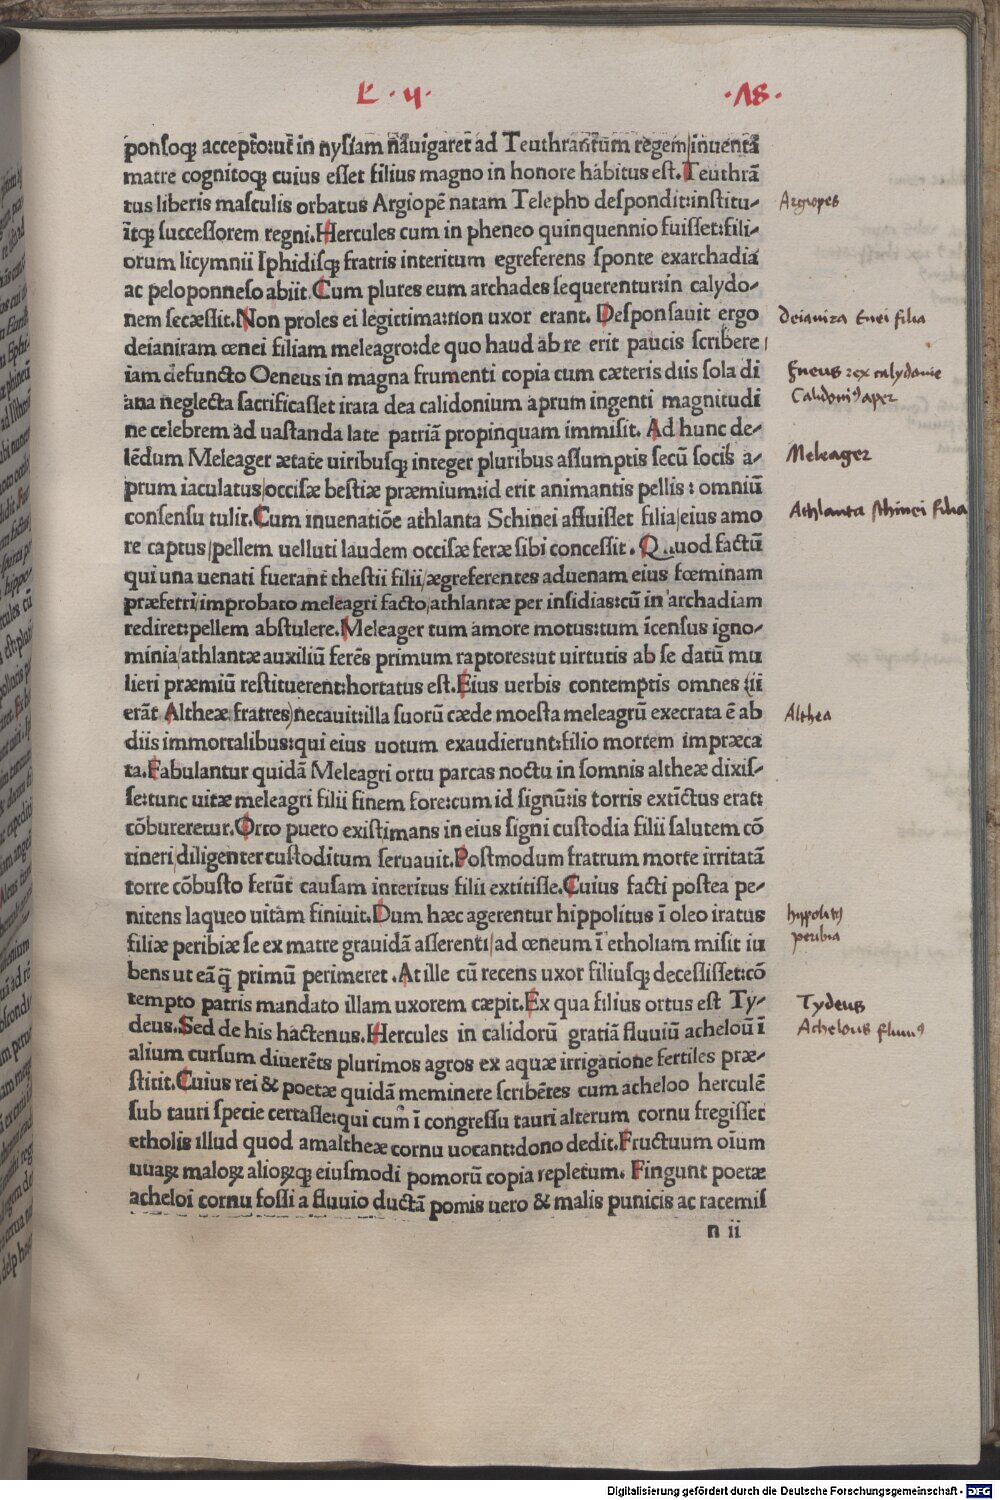 L · 4 · · 18 ·
ponsoq; accepto:ut in nysiam nauigaret ad Teuthrantum regem/inuenta
matre cognitoq; cuius esset filius magno in honore habitus est. Teuthrā
tus liberis masculis orbatus Argiopē natam Telepho despondit:institu-
Argiopes
ītq; successorem regni. Hercules cum in pheneo quinquennio fuisset:fili-
orum licymnii Iphidisq; fratris interitum egreferens sponte exarchadia
ac peloponneso abiit. Cum plures eum archades sequerentur:in calydo-
nem secæssit. Non proles ei legittima:non uxor erant. Desponsauit ergo
Deianira Enei filia
deianiram œnei filiam meleagro:de quo haud ab re erit paucis scribere/
iam defuncto Oeneus in magna frumenti copia cum cæteris diis sola di
Eneus rex calydonie
ana neglecta sacrificasset irata dea calidonium aprum ingenti magnitudi
Calidoni⁹ aper
ne celebrem ad uastanda late patriā propinquam immisit. Ad hunc de-
lēdum Meleager ætate uiribusq; integer pluribus assumptis secū sociis a-
Meleager
prum iaculatus/occisæ bestiæ præmium:id erit animantis pellis: omniū
consensu tulit. Cum inuenatiōe athlanta Schinei affuisset filia/eius amo
Athlanta schinei filia
re captus/pellem uelluti laudem occisæ feræ sibi concessit. Quod factū
qui una uenati fuerant thestii filii/ægreferentes aduenam eius fœminam
præferri/improbato meleagri facto/athlantæ per insidias:cū in archadiam
rediret:pellem abstulere. Meleager tum amore motus:tum īcensus igno-
minia/athlantæ auxiliū ferēs primum raptores:ut uirtutis ab se datū mu
lieri præmiū restituerent:hortatus est. Eius uerbis contemptis omnes (ii
erāt Altheæ fratres)necauit:illa suorū cæde moesta meleagrū execrata ē ab
Althea
diis immortalibus:qui eius uotum exaudierunt:filio mortem impræca
ta. Fabulantur quidā Meleagri ortu parcas noctu in somnis altheæ dixis-
se:tunc uitæ meleagri filii finem fore:cum id signū:is torris extīctus erat:
cōbureretur. Orto puero existimans in eius signi custodia filii salutem cō
tineri/diligenter custoditum seruauit. Postmodum fratrum morte irritatā
torre cōbusto ferūt causam interitus filii extitisse. Cuius facti postea pe-
nitens laqueo uitam finiuit. Dum hæc agerentur hippolitus ī oleo iratus
hippolit⁹
filiæ peribiæ se ex matre grauidā asserenti/ad œneum ī etholiam misit iu
peribia
bens ut eā q̄ primū perimeret. At ille cū recens uxor filiusq; decessisset:cō
tempto patris mandato illam uxorem cæpit. Ex qua filius ortus est Ty-
Tydeus
deus. Sed de his hactenus. Hercules in calidorū gratiā fluuiū acheloū ī
Achelous fluui⁹
alium cursum diuerēts plurimos agros ex aquæ irrigatione fertiles præ-
stitit. Cuius rei & poetæ quidā meminere scribētes cum acheloo herculē
sub tauri specie certasse:qui cum ī congressu tauri alterum cornu fregisset
etholis illud quod amaltheæ cornu uocant:dono dedit. Fructuum oīum
uuaꝝ maloꝝ alioꝝq; eiusmodi pomorū copia repletum. Fingunt poetæ
acheloi cornu fossi a fluuio ductā pomis uero & malis punicis ac racemis
n ii
Digitalisierung gefördert durch die Deutsche Forschungsgemeinschaft - DFG